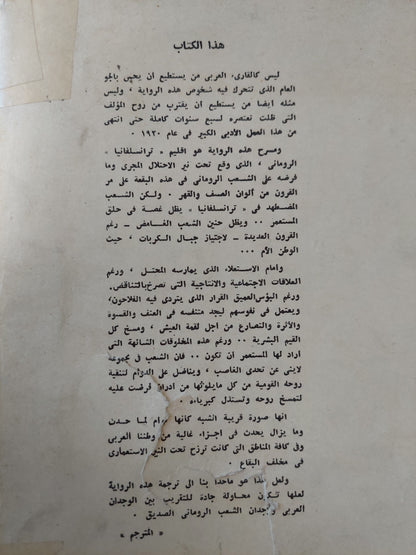 هذا الكتاب
ليس كالقارىء العربى من يستطيع أن يحس بالجو
العام الذى تتحرك فيه شخوص هذه الرواية ، وليس
مثله أيضا من يستطيع أن يقترب من روح المؤلف
التى ظلت تعتصره سبع سنوات كاملة حتى انتهى
من هذا العمل الأدبى الكبير فى عام ١٩٢٠ .
ومسرح هذه الرواية هو اقليم « ترانسلفانيا »
الرومانى ، الذى وقع تحت نير الاحتلال المجرى وما
فرضه على الشعب الرومانى فى هذه البقعة على مر
القرون من ألوان العسف والقهر . ولكن الشعب
المضطهد فى « ترانسلفانيا » يظل غصة فى حلق
المستعمر .. ويظل حنين الشعب الغامض ـ رغم
القرون العديدة ـ لاجتياز جبال الكربات ، حيث
الوطن الأم ...
وأمام الاستعلاء الذى يمارسه المحتل ، ورغم
العلاقات الاجتماعية والانتاجية التى تصرخ بالتناقض،
ورغم البؤس العميق القرار الذى يتردى فيه الفلاحون ،
ويعتمل فى نفوسهم ليجد متنفسه فى العنف والقسوة
والأثرة والتصارع من أجل لقمة العيش ، ومسخ كل
القيم البشرية .. ورغم هذه المخلوقات الشائهة التى
أراد لها المستعمر أن تكون .. فان الشعب فى مجموعه
لاينى عن تحدى الغاصب ، ويناضل على الدوام لتنقية
روحه القومية من كل مايلوثها من أدران فرضت عليه
لتمسخ روحه وتستذل كبرياءه .
انها صورة قريبة الشبه كأنها لما حدث
وما يزال يحدث فى أجزاء غالية من وطننا العربى
وفى كافة المناطق التى كانت ترزح تحت النير الاستعمارى
فى مختلف البقاع .
ولعل هذا هو ماحدا بنا الى ترجمة هذه الرواية
لعلها تكون محاولة جادة للتقريب بين الوجدان
العربى ووجدان الشعب الرومانى الصديق .
« المترجم »